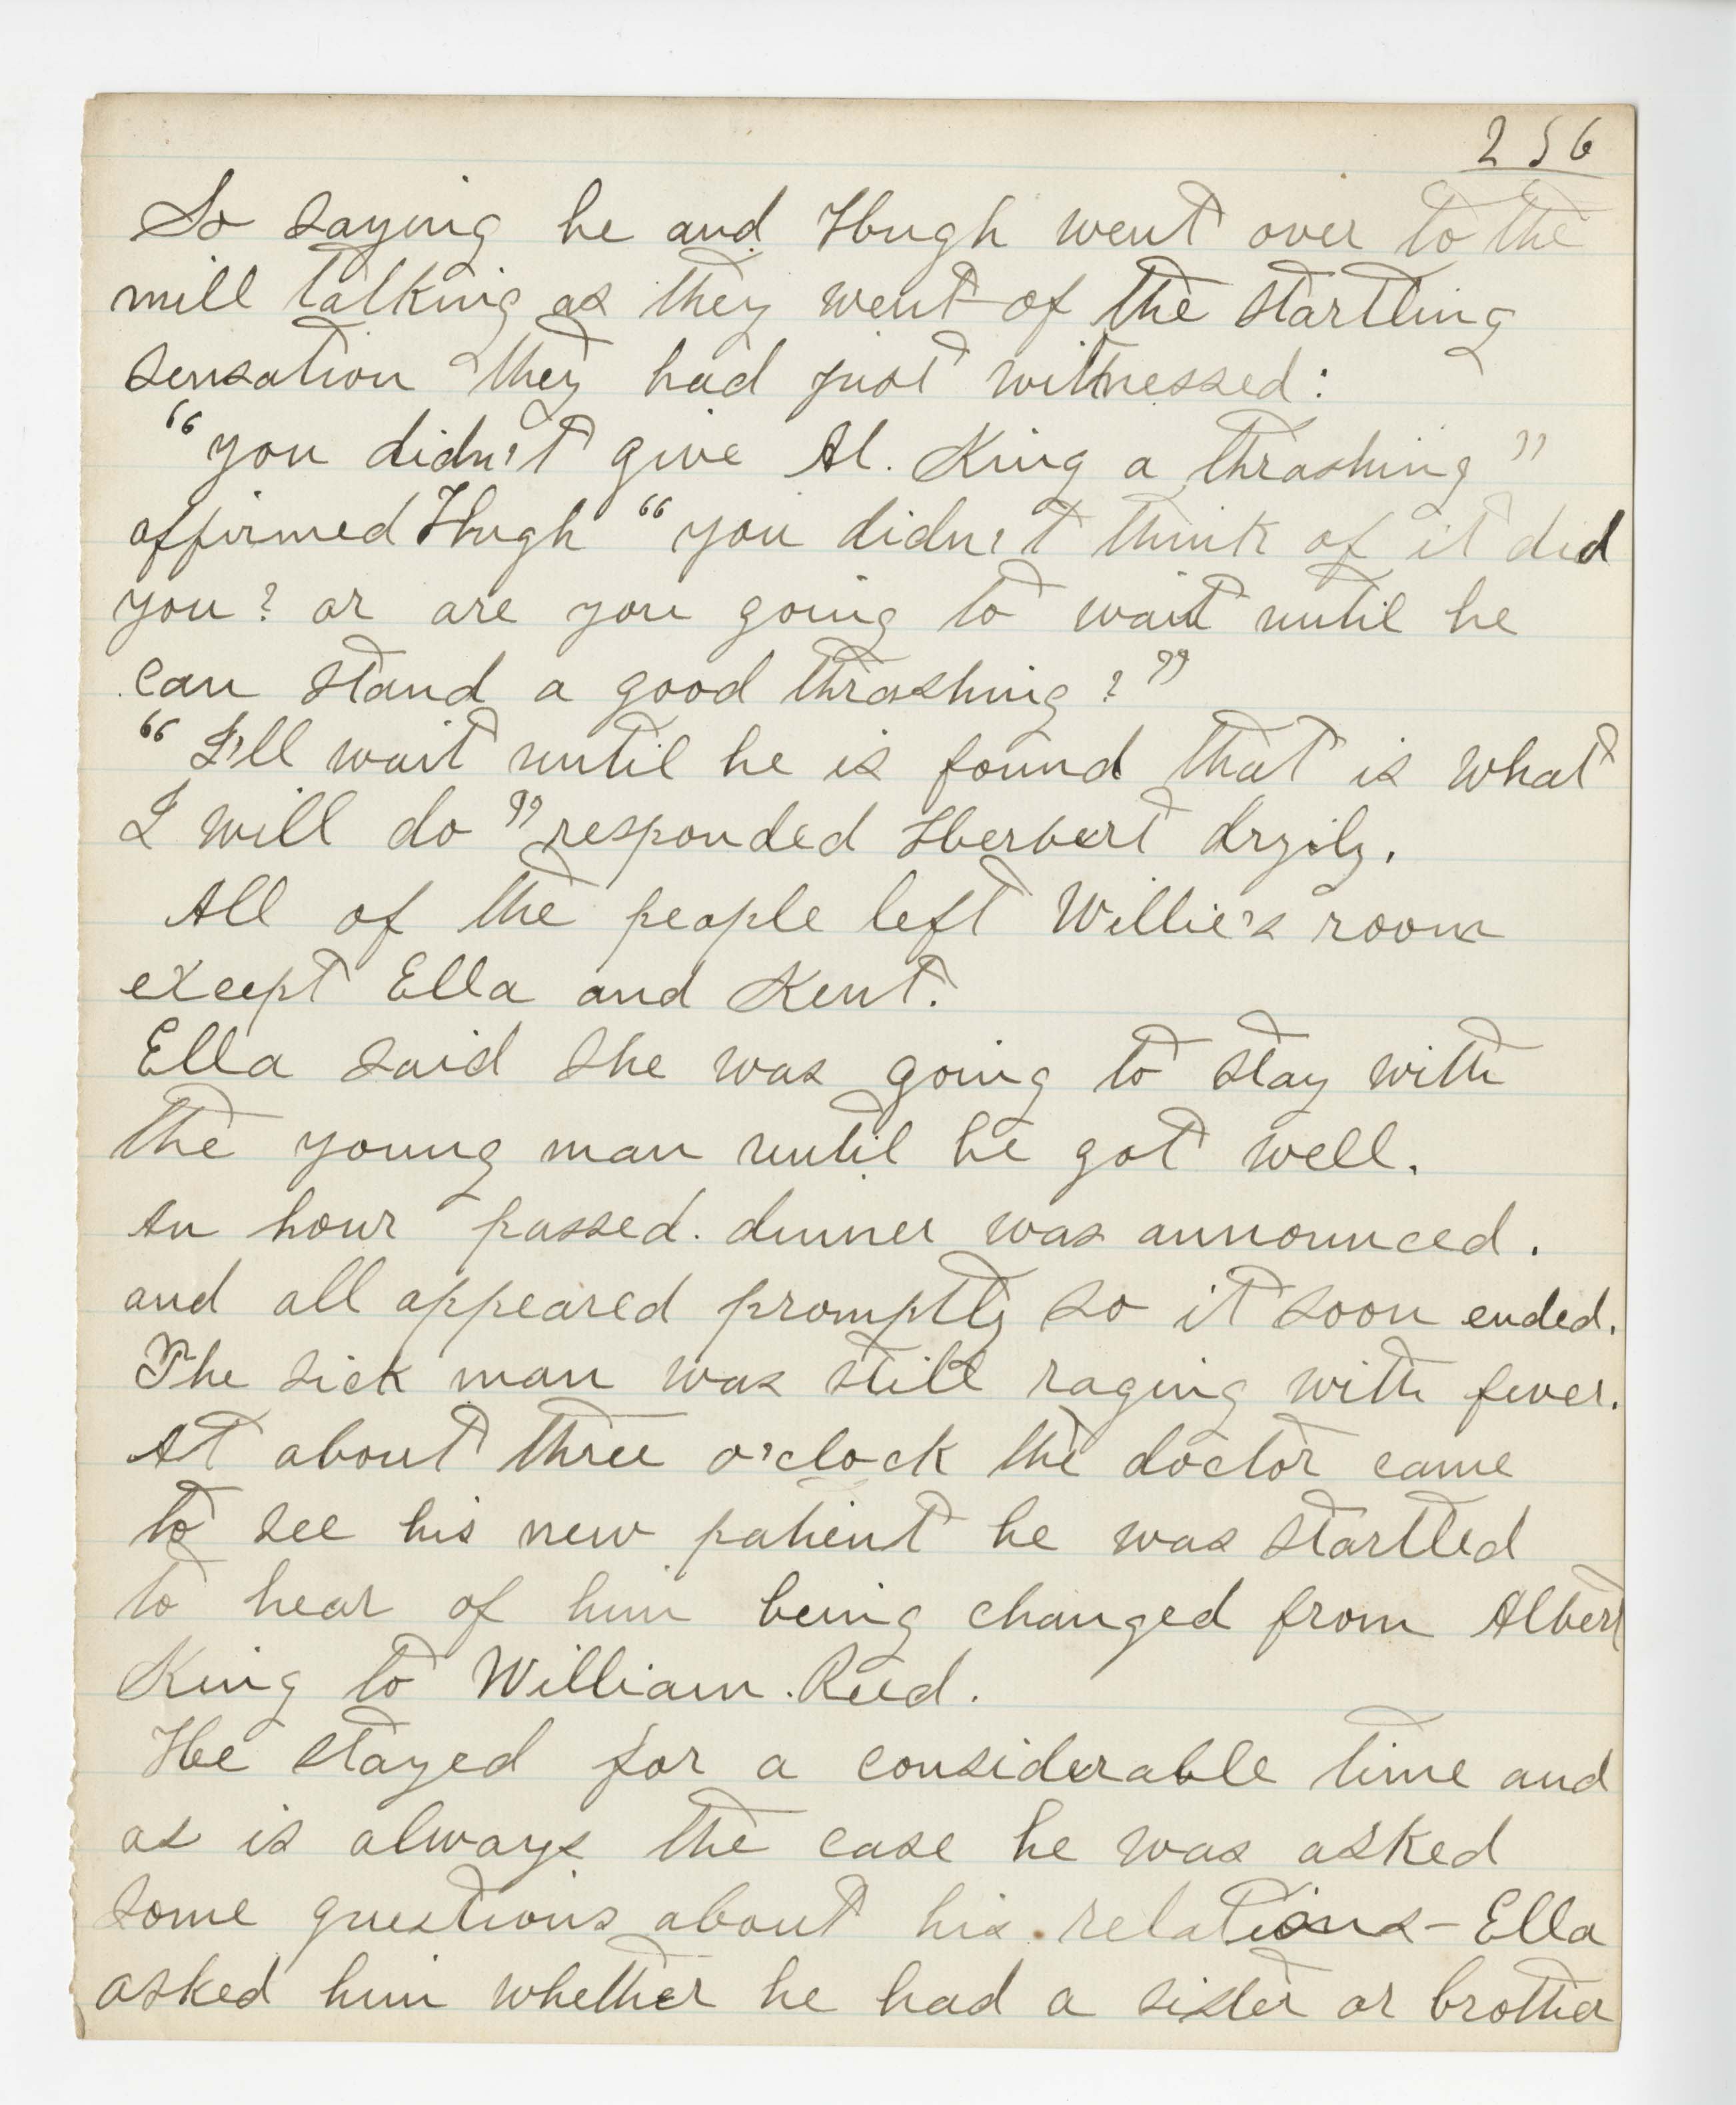 256
So saying he and Hugh went over to the
mill talking as they went of the startling
sensation they had just witnessed:
"you didn't give Al. King a thrashing"
affirmed Hugh "you didn't think of it did
you? or are you going to wait until he
can stand a good thrashing?"
"I'll wait until he is found that is what
I will do" responded Herbert dryily.
All of the people left Willie's room
except Ella and Kent.
Ella said she was going to stay with
the young man until he got well.
An hour passed. dinner was announced.
and all appeared promptly so it soon ended.
The sick man was still raging with fever.
At about three o'clock the doctor came
to see his new patient he was startled
to hear of him being changed from Albert
King to William. Reed.
He stayed for a considerable time and
as is always the case he was asked
some questions about his relations - Ella
asked him whether he had a sister or brother